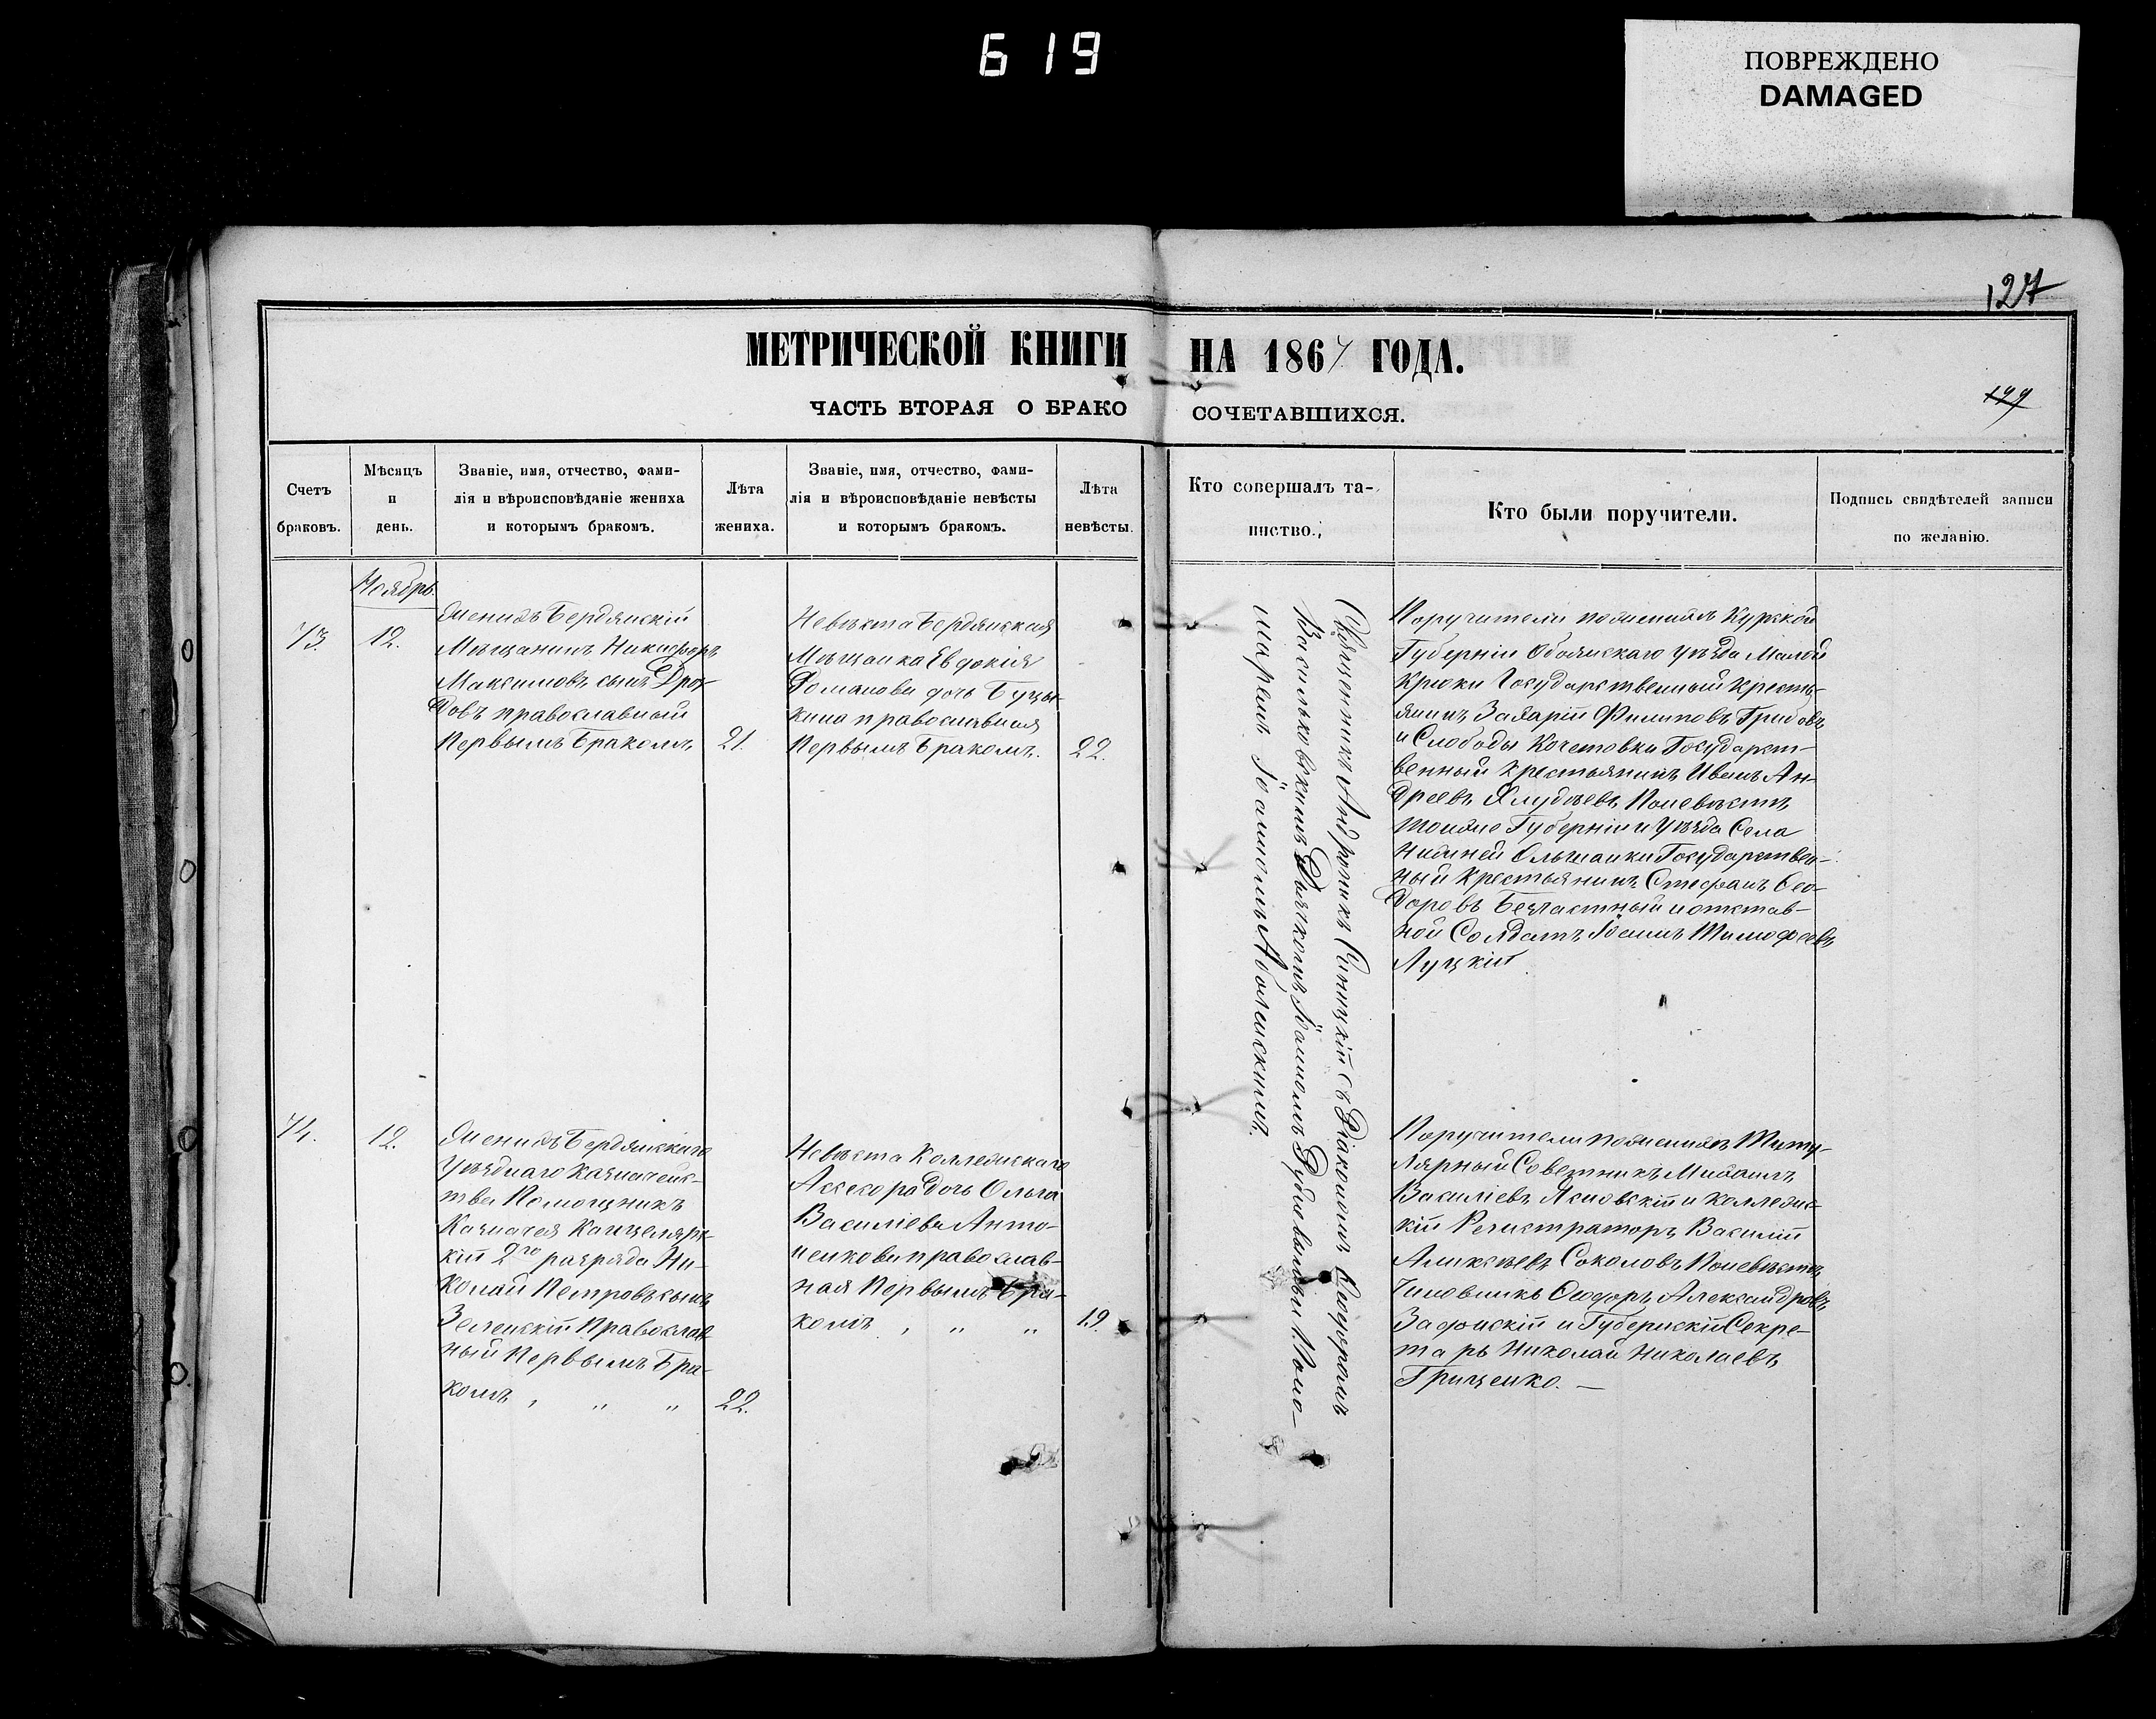 619
ПОВРЕЖДЕНО
DAMAGED
127
МЕТРИЧЕСКОЙ КНИГИ НА 1867 ГОДА.
199
ЧАСТЬ ВТОРАЯ О БРАКОСОЧЕТАВШИХСЯ.
Счетъ
браковъ.
Мѣсяцъ
и
день.
Званіе, имя, отчество, фами-
лія и вѣроисповѣданіе жениха
и которымъ бракомъ.
Лѣта
жениха.
Званіе, имя, отчество, фами-
лія и вѣроисповѣданіе невѣсты
и которымъ бракомъ.
Лѣта
невѣсты.
Кто совершалъ та-
инство.
Кто были поручители.
Подпись свидѣтелей записи
по желанію.
Ноябрь.
73.
12.
Женихъ Бердянскій
Мѣщанинъ Никифоръ
Максимовъ сынъ
довъ православный
Первымъ Бракомъ
21.
Невѣста Бердянская
Мѣщанка Евдокія
Романова дочь
кина православная
Первымъ Бракомъ.
22.
Священникъ Андроникъ Синицкій съ Діакономъ Ѳеодоромъ
Васильковскимъ Дьячкомъ Іоанномъ и Поно-
маремъ Іоанномъ
Поручители по женихѣ Курской
Губерніи Обоянскаго уѣзда Малой
Крюки Государственный Кресть-
янинъ Захарій Филиповъ Грибовъ
и Слободы Кочетовки Государст-
венный Крестьянинъ Иванъ Ан-
дреевъ По невѣстѣ
тойже Губерніи и Уѣзда Села
Нижней Ольшанки Государствен-
ный Крестьянинъ Стефанъ Ѳео-
доровъ Безчастный и отстав-
ной Солдатъ Іоаннъ Тимофеевъ
Луцкій
74.
12.
Женихъ Бердянскаго
Уѣзднаго Казначейс-
тва Помощникъ
Казначея Канцелярс-
кій 2го разряда Ни-
колай Петровъ сынъ
Зеленскій Православ
ный Первымъ Бра-
комъ , " "
22.
Невѣста Коллежскаго
Ассесора Дочь Ольга
Василіева Анто-
ненкова православ-
ная Первымъ Бра-
комъ , " "
19.
Поручители по женихѣ Титу-
лярный Совѣтникъ Михаилъ
Василіевъ Ясновскій и Коллежс-
кій Регистраторъ Василій
Алексѣевъ Соколовъ По невѣстѣ
Чиновникъ Ѳеодоръ Александровъ
Задонскій и Губернскій Секре-
тарь Николай Николаевъ
Грищенко. —